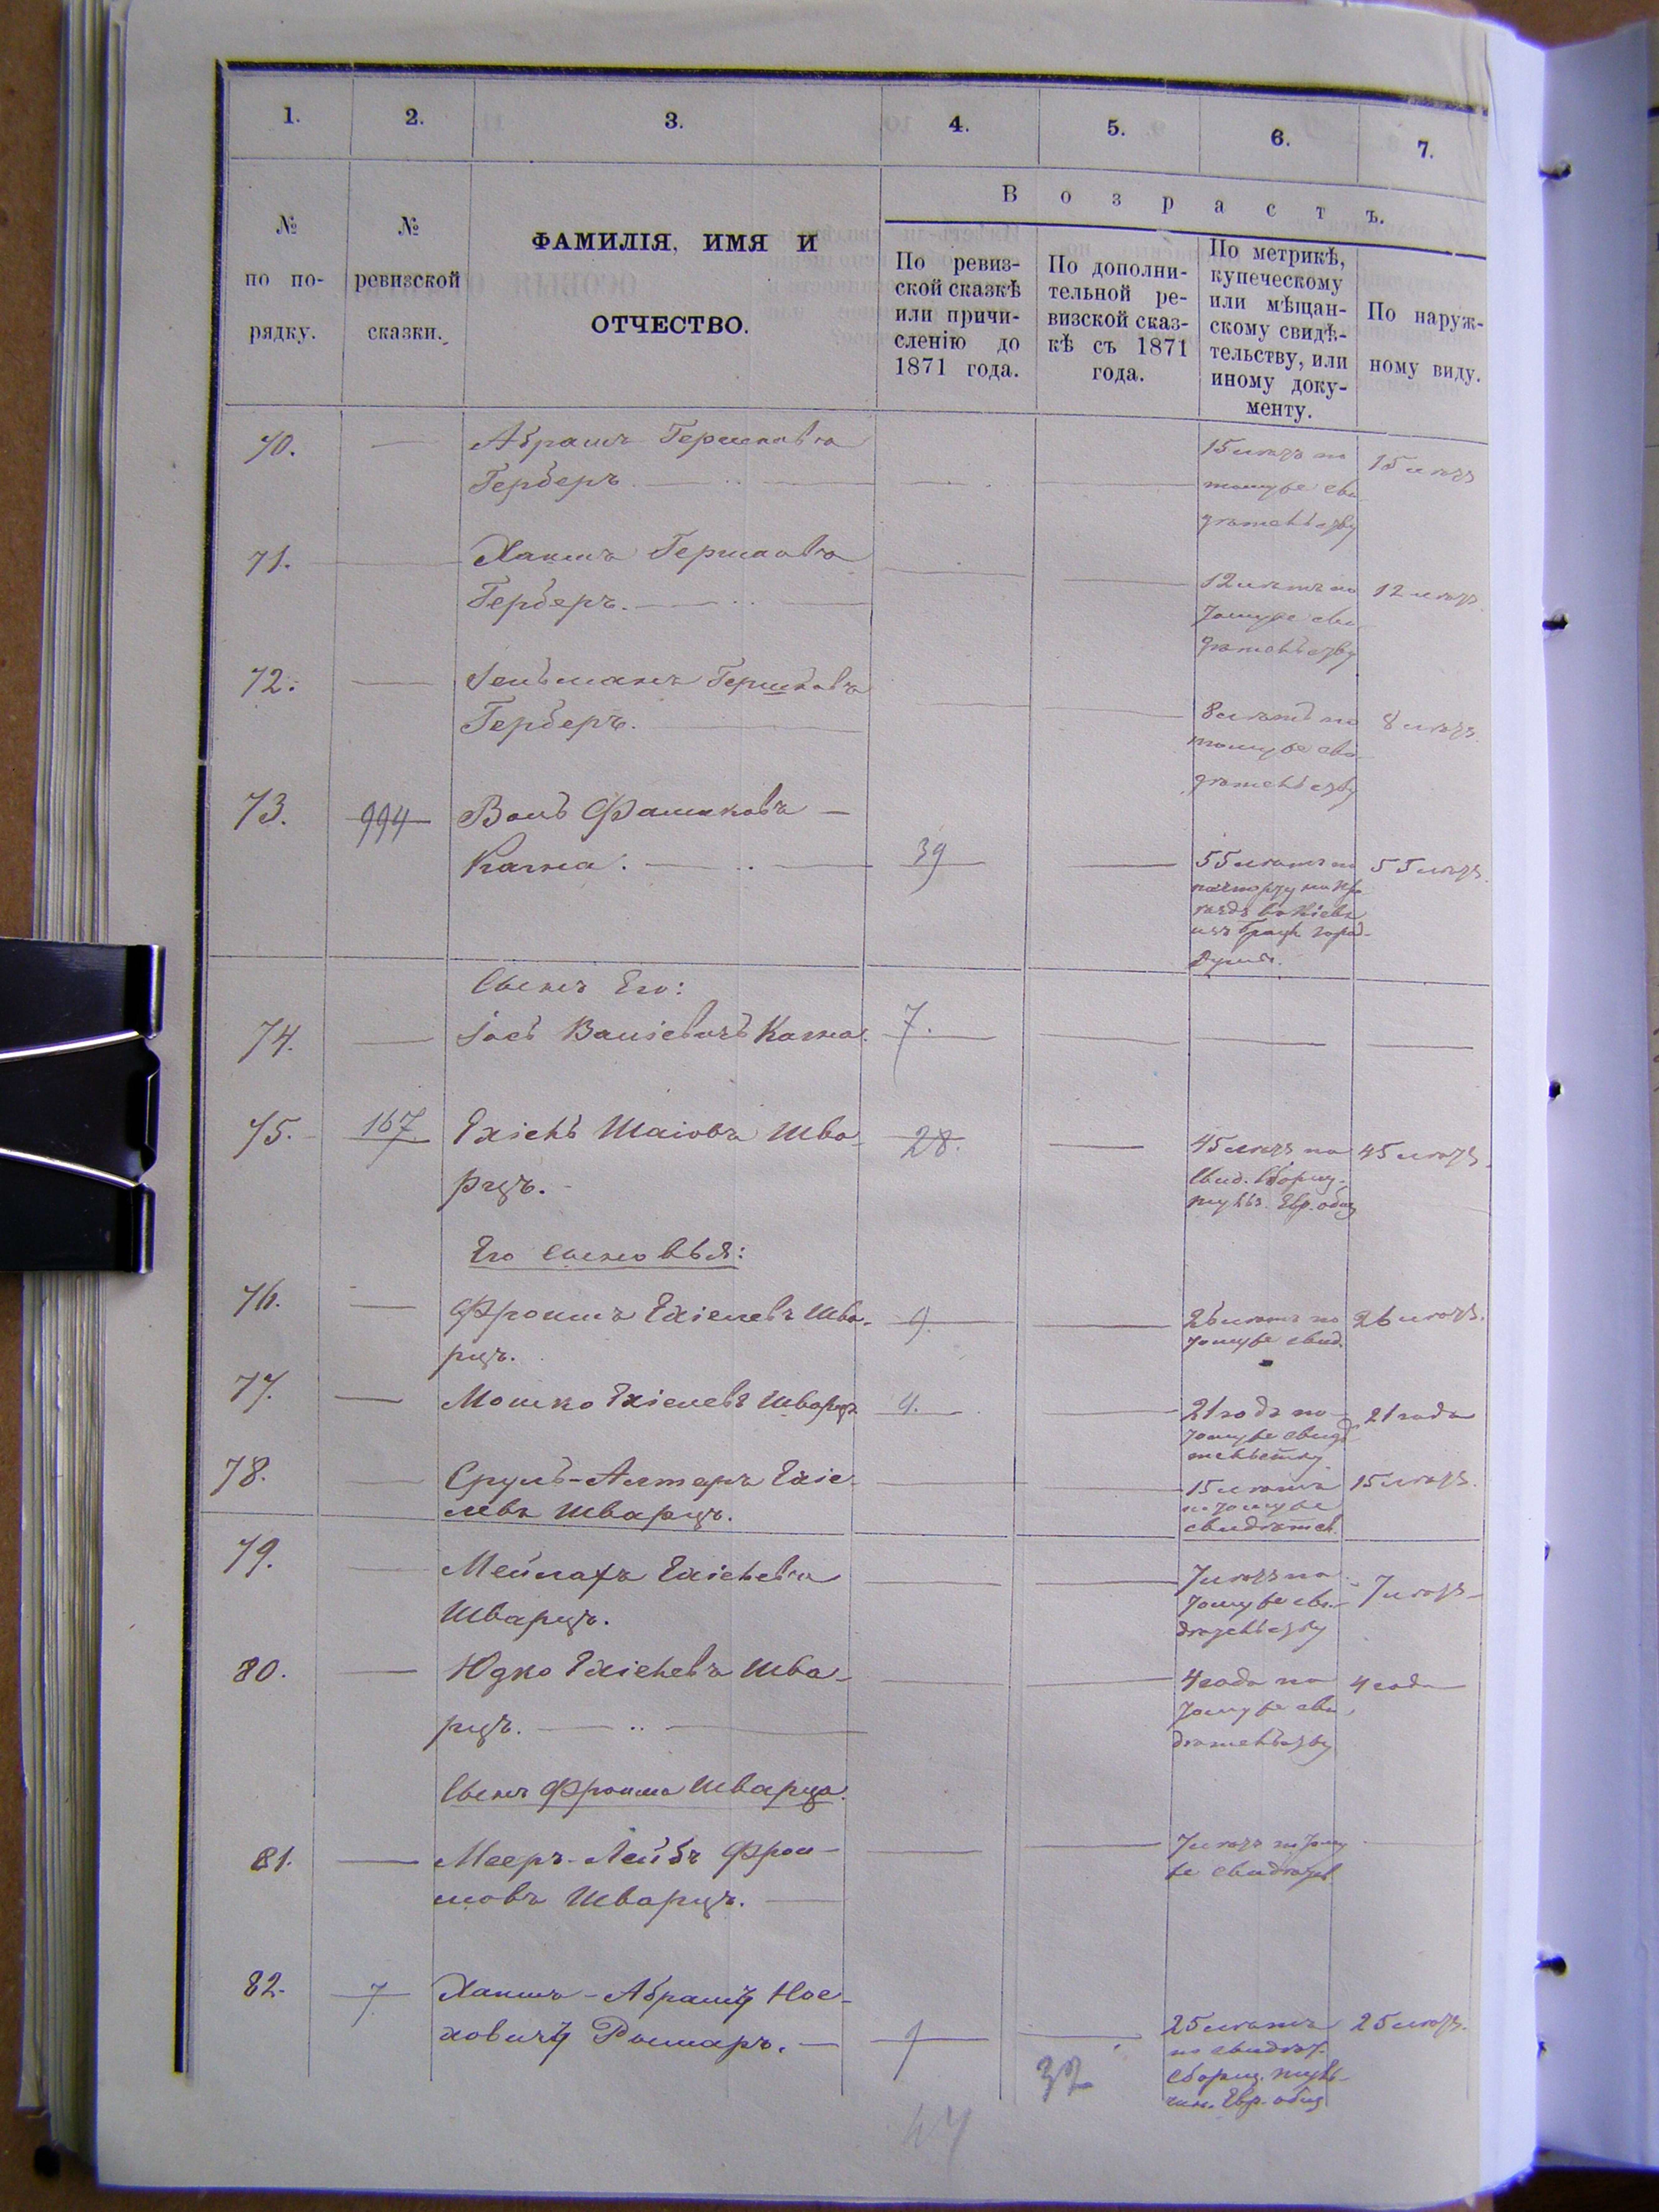 1. 2. 3. 4. 5. 6. 7.
№ по по-рядку.
№ ревизской сказки.
ФАМИЛІЯ, ИМЯ И
ОТЧЕСТВО.
Возрастъ.
По ревиз-
ской сказкѣ
или причи-
сленію до
1871 года.
По дополни-
тельной ре-
визской сказ-
кѣ съ 1871
года.
По метрикѣ,
купеческому
или мѣщан-
скому свидѣ-
тельству, или
иному доку-
менту.
По наруж-
ному виду.
70. — Абрамъ Гершковъ
Герберъ. — — — 15 лѣтъ по 15 лѣтъ
тому же сви
дѣтельству
71. — Хаимъ Гершковъ
Герберъ. — — — 12 лѣтъ по 12 лѣтъ
тому же сви
дѣтельству
72. — Гершковъ
Герберъ. — — — 8 лѣтъ по 8 лѣтъ
тому же сви
дѣтельству
73. 994 Фроимовъ —
39 — 55 лѣтъ по 55 лѣтъ
Сынъ Его:
74. — Іосъ 7. — — —
75. 167 Ехіель Шаіовъ Шва-
рцъ. 28. — 45 лѣтъ по 45 лѣтъ.
Евр. общ
Его сыновья:
76. — Фроимъ Ехіелевъ Шва-
рцъ. 9. — 26 лѣтъ по 26 лѣтъ.
тому же свид.
77. — Мошко Ехіелевъ Шварцъ 4. — 21 годъ по 21 года
тому же свидѣ
тельству
78. — Сруль-Алтеръ Ехіе-
левъ Шварцъ. — — 15 лѣтъ 15 лѣтъ.
по тому же
свидѣтел.
79. — Мейлахъ Ехіелевъ
Шварцъ. — — 7 лѣтъ по 7 лѣтъ
тому же сви-
дѣтельству
80. — Юдко Ехіелевъ Шва-
рцъ. — — — 4 года по 4 года
тому же сви
дѣтельству
Сынъ Фроима Шварца.
81. — Мееръ-Лейбъ Фрои-
мовъ Шварцъ. — — 7 лѣтъ по тому —
же свидѣтел
82. 7 Хаимъ-Абрамъ Нос-
ховичъ — 9 — 25 лѣтъ 25 лѣтъ.
по свидѣт.
Евр. общ
32